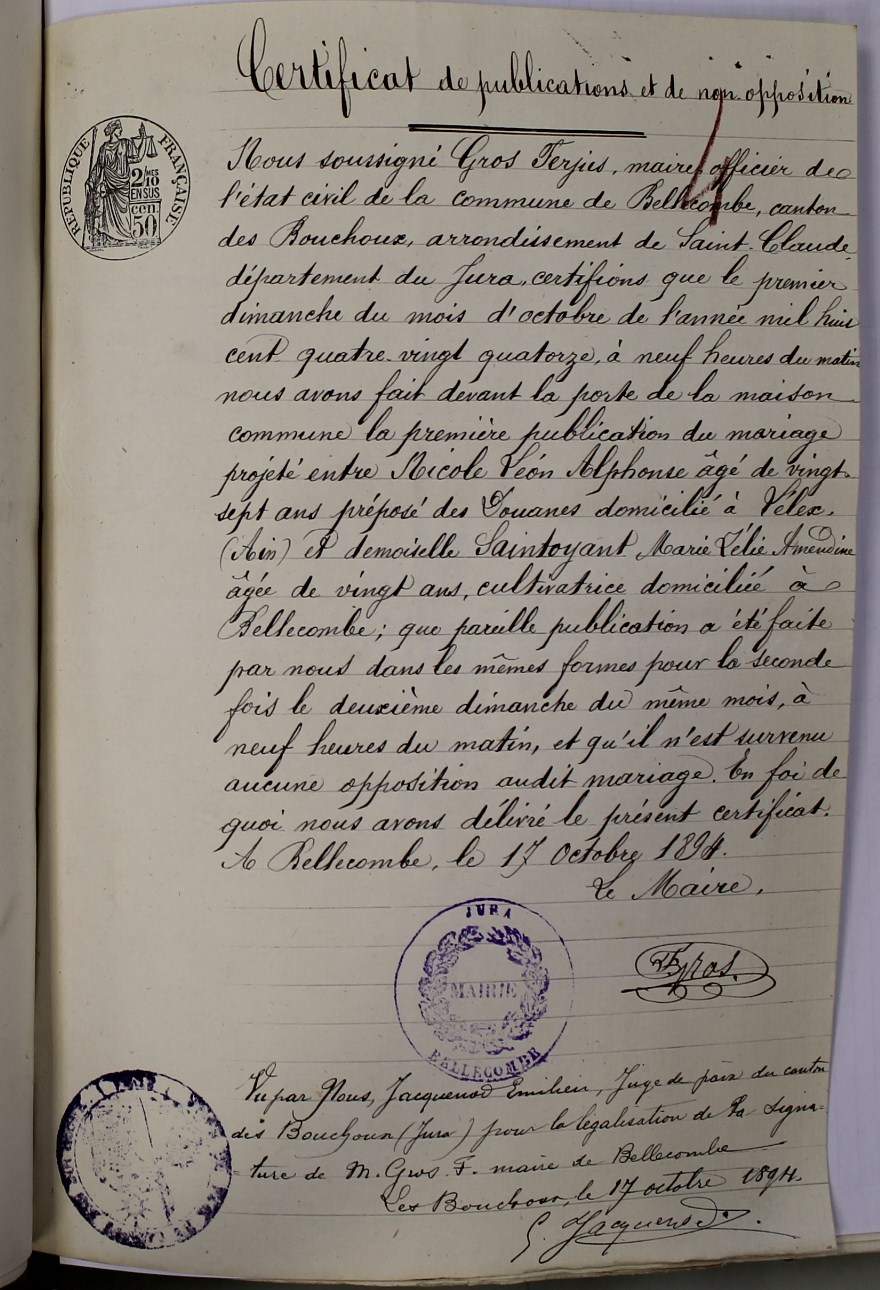 Certificat de publications et de non opposition
RÉPUBLIQUE FRANÇAISE
2/MES
10
EN SUS
CEN.
50
Nous soussigné Gros Ferjus, maire officier de
l'état civil de la commune de Bellecombe, canton
des Bouchoux, arrondissement de Saint-Claude
département du Jura, certifions que le premier
dimanche du mois d'octobre de l'année mil huit
cent quatre-vingt quatorze, à neuf heures du matin
nous avons fait devant la porte de la maison
commune la première publication du mariage
projeté entre Nicole Léon Alphonse âgé de vingt-
sept ans préposé des Douanes domicilié à Lélex,
(Ain) et demoiselle Saintoyant Marie Zélie Amendine
âgée de vingt ans, cultivatrice domiciliée à
Bellecombe; que pareille publication a été faite
par nous dans les mêmes formes pour la seconde
fois le deuxième dimanche du même mois, à
neuf heures du matin, et qu'il n'est survenu
aucune opposition audit mariage. En foi de
quoi nous avons délivré le présent certificat.
A Bellecombe, le 17 Octobre 1894.
Le Maire,
JURA
MAIRIE
BELLECOMBE
F Gros.
Vu par Nous, Jacquenod Emilien, Juge de paix du canton
des Bouchoux (Jura) pour la légalisation de la signa-
ture de M. Gros F. maire de Bellecombe
Les Bouchoux, le 17 octobre 1894.
E. Jacquenod